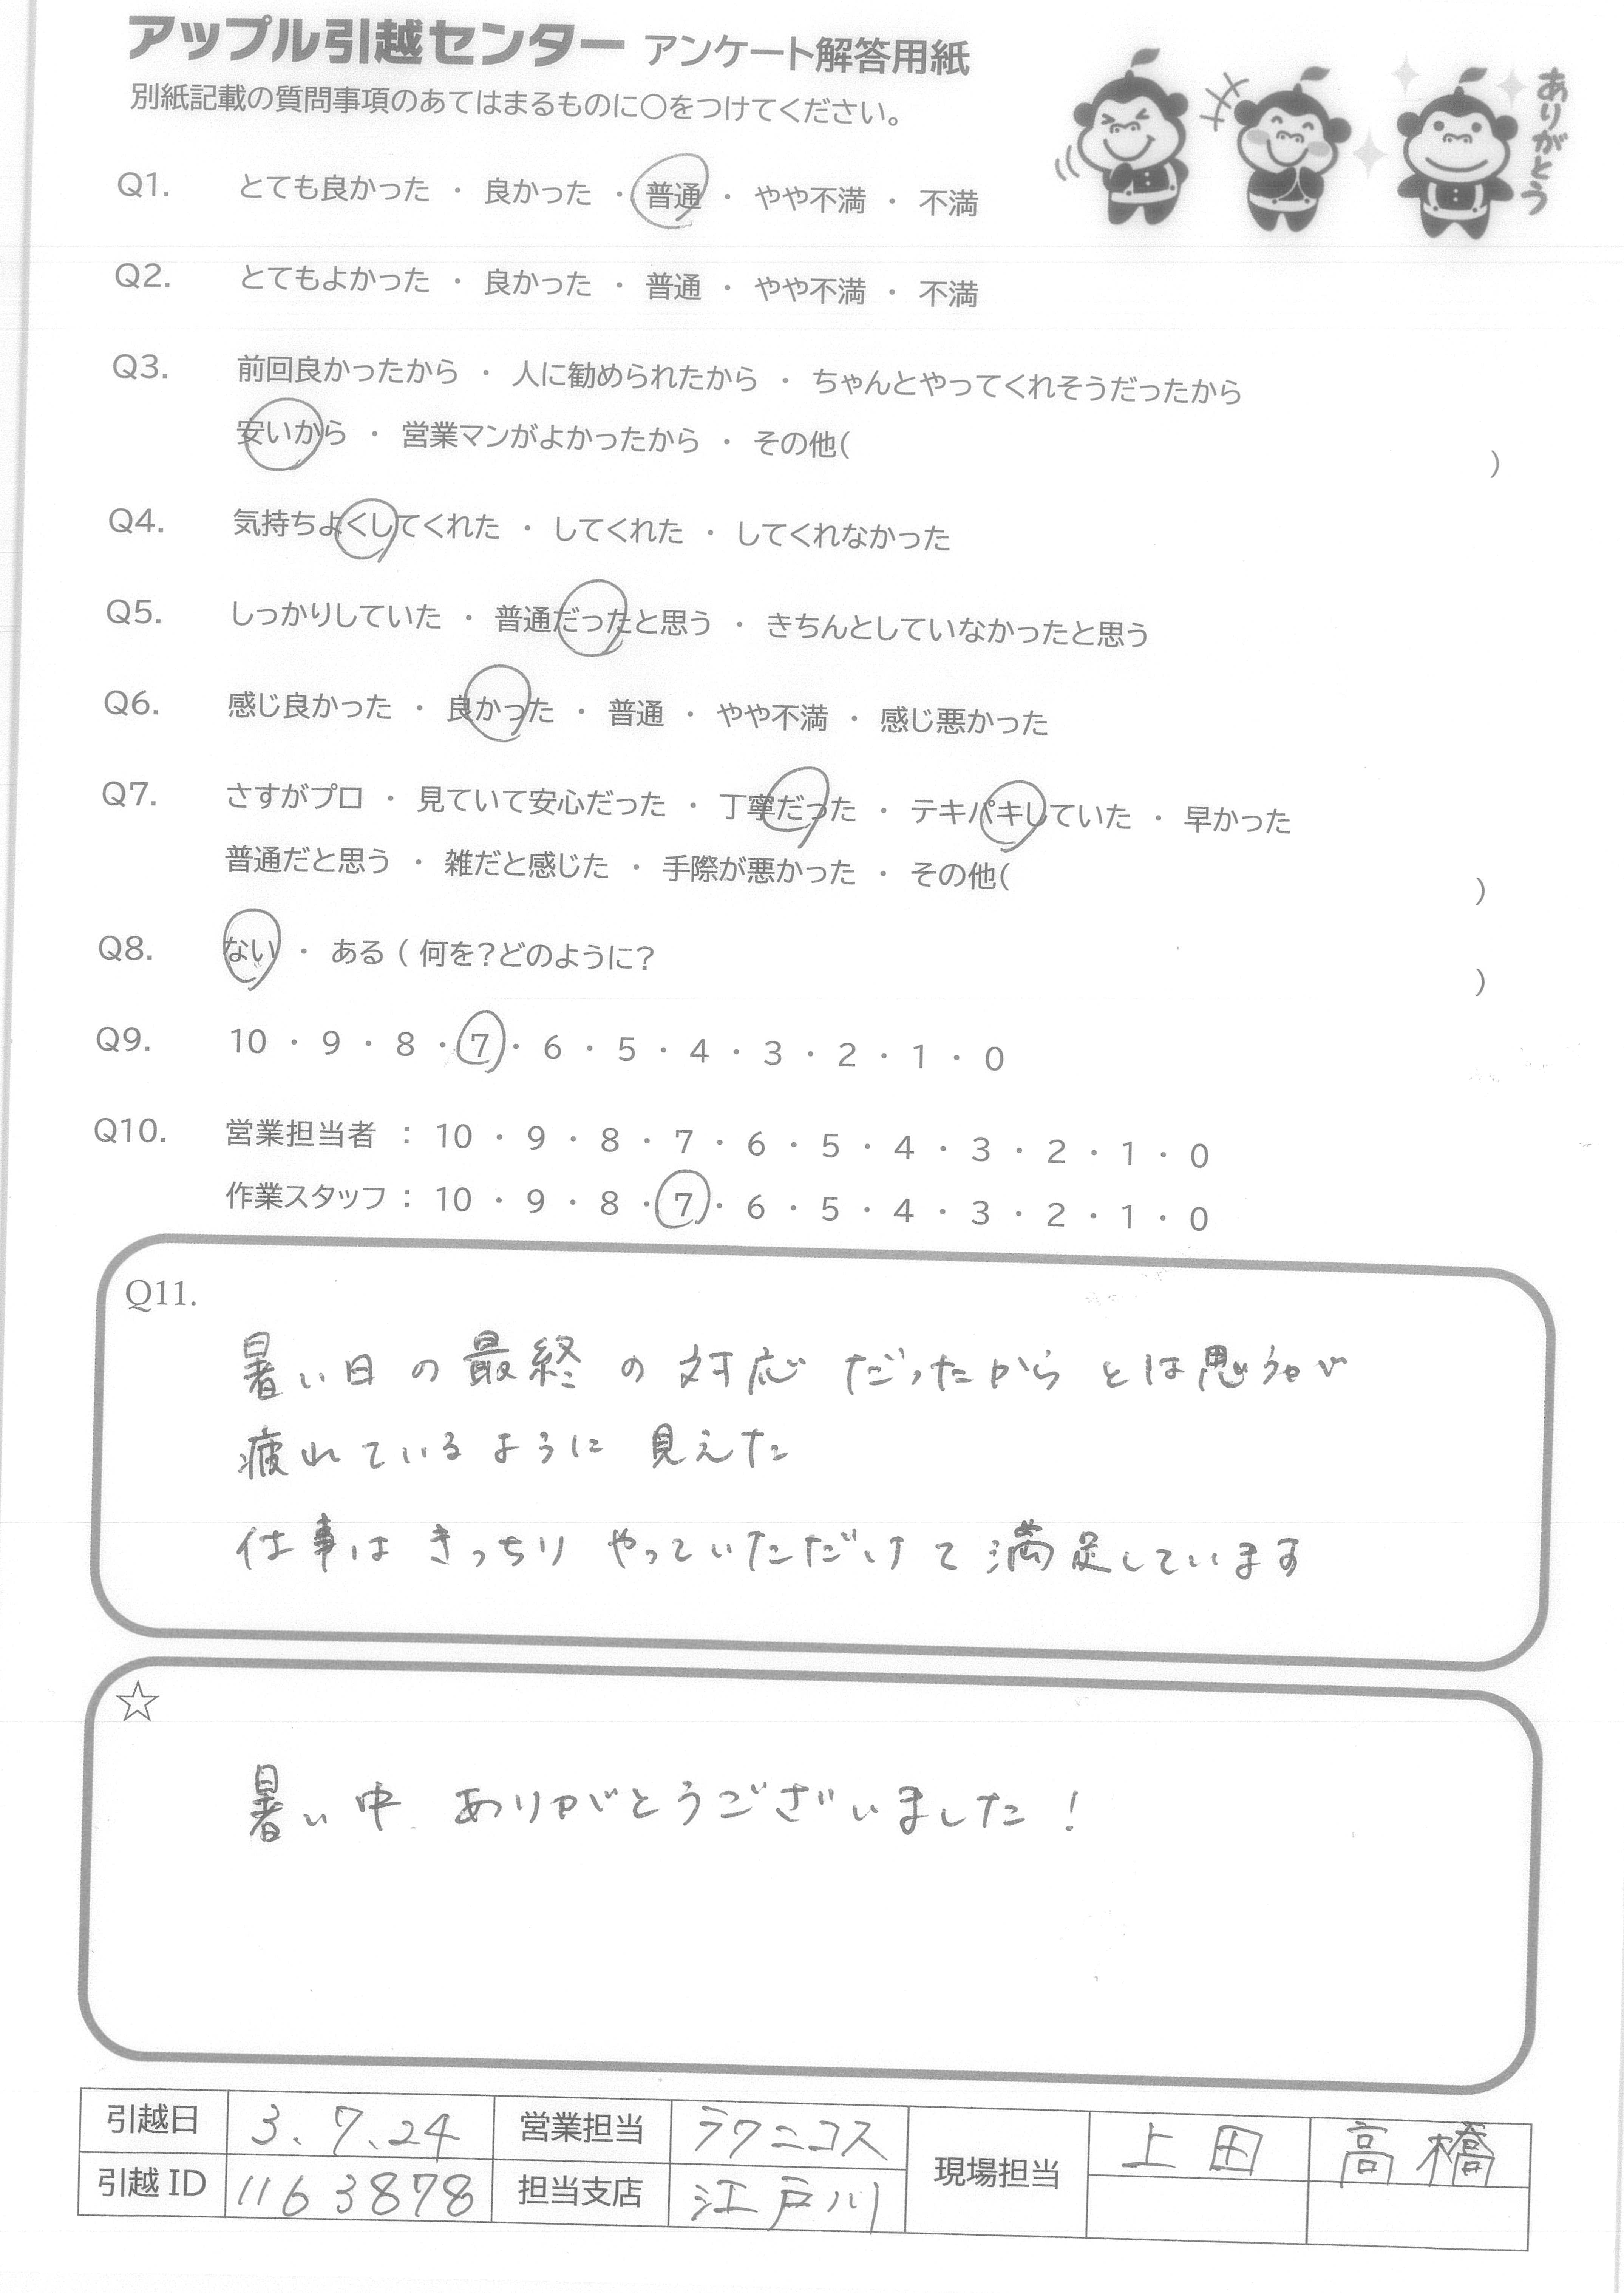 アップル引越センター アンケート解答用紙
別紙記載の質問事項のあてはまるものに〇をつけてください。
ありがとう
Q1. とても良かった ・ 良かった ・ 普通 ・ やや不満 ・ 不満
Q2. とてもよかった ・ 良かった ・ 普通 ・ やや不満 ・ 不満
Q3. 前回良かったから ・ 人に勧められたから ・ ちゃんとやってくれそうだったから
安いから ・ 営業マンがよかったから ・ その他( )
Q4. 気持ちよくしてくれた ・ してくれた ・ してくれなかった
Q5. しっかりしていた ・ 普通だったと思う ・ きちんとしていなかったと思う
Q6. 感じ良かった ・ 良かった ・ 普通 ・ やや不満 ・ 感じ悪かった
Q7. さすがプロ ・ 見ていて安心だった ・ 丁寧だった ・ テキパキしていた ・ 早かった
普通だと思う ・ 雑だと感じた ・ 手際が悪かった ・ その他( )
Q8. ない ・ ある ( 何を?どのように? )
Q9. 10 ・ 9 ・ 8 ・ 7 ・ 6 ・ 5 ・ 4 ・ 3 ・ 2 ・ 1 ・ 0
Q10. 営業担当者 : 10 ・ 9 ・ 8 ・ 7 ・ 6 ・ 5 ・ 4 ・ 3 ・ 2 ・ 1 ・ 0
作業スタッフ : 10 ・ 9 ・ 8 ・ 7 ・ 6 ・ 5 ・ 4 ・ 3 ・ 2 ・ 1 ・ 0
Q11.
暑い日の最終の対応だったからとは思うが
疲れているように見えた
仕事はきっちりやっていただけて満足しています
☆
暑い中ありがとうございました!
引越日 3.7.24 営業担当 ラクニコス 現場担当 上田 高橋
引越ID 1163878 担当支店 江戸川